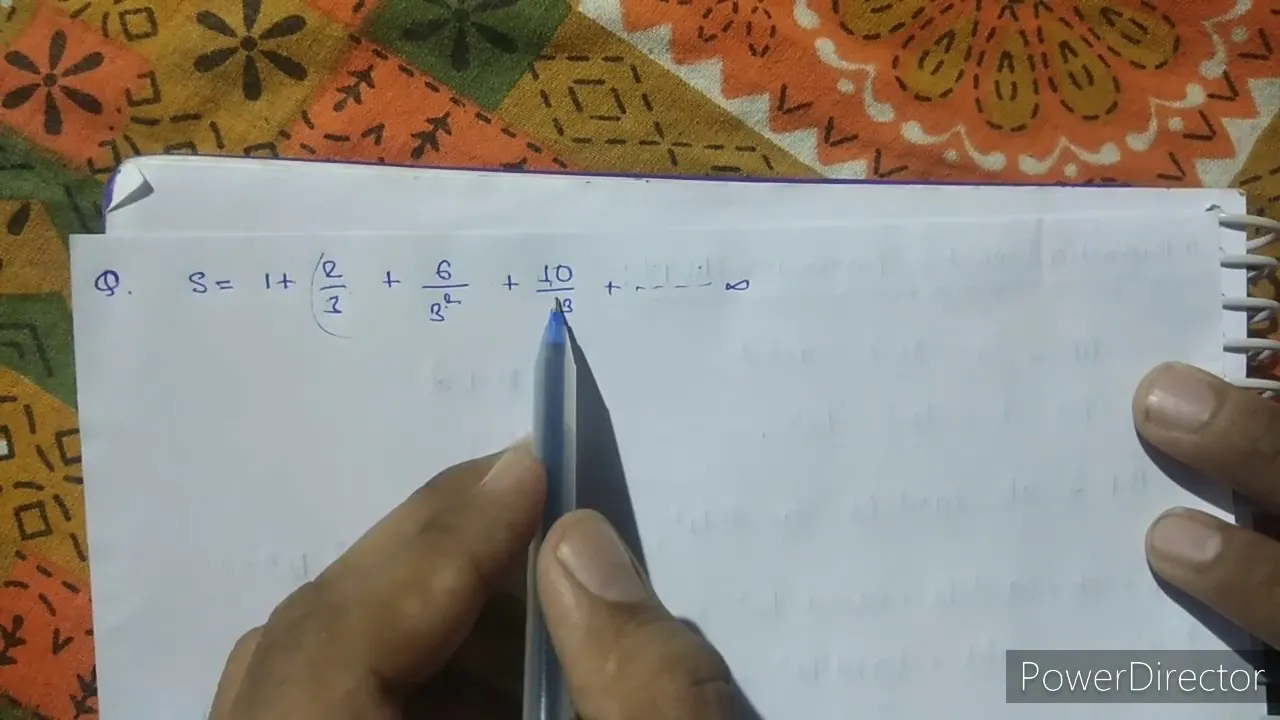 Q. S = 1 + ( 2/3 + 6/3² + 10/3³ + ------ ∞
PowerDirector